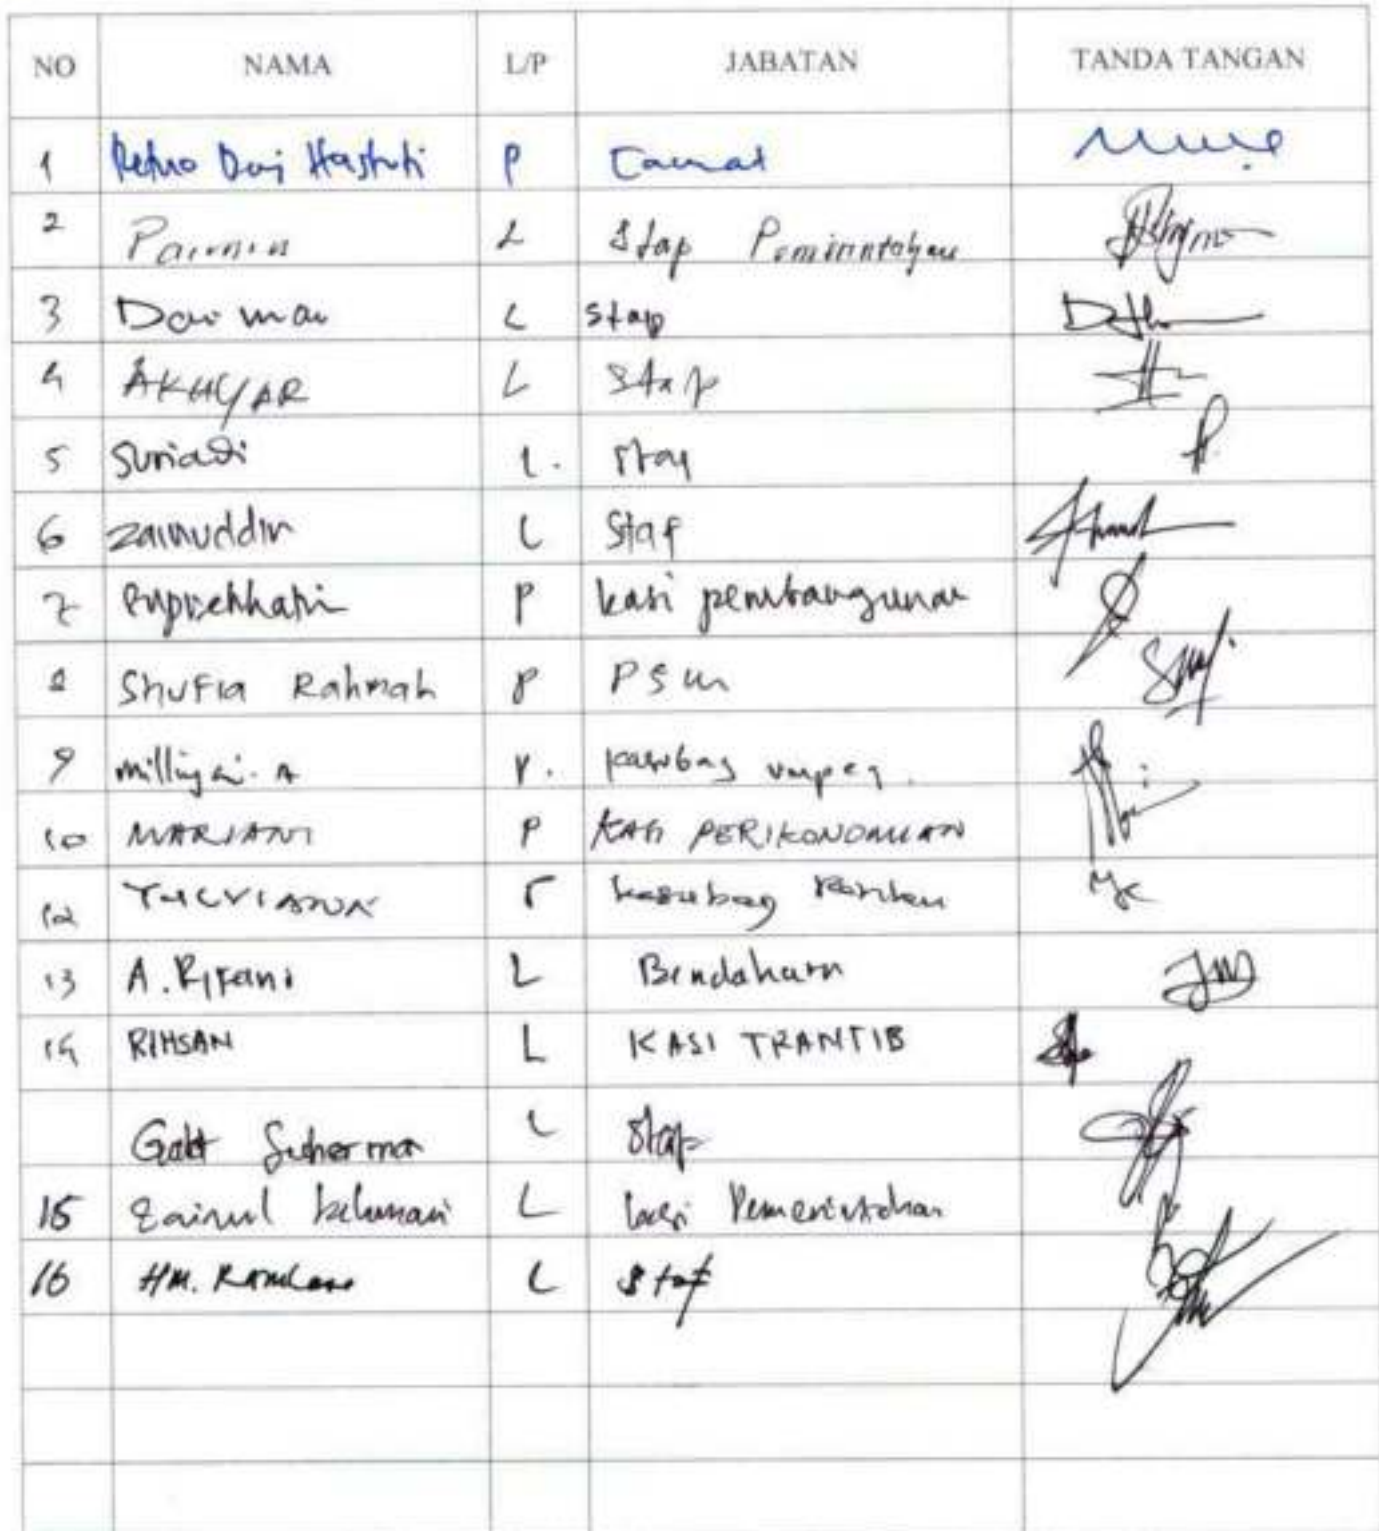 NO NAMA L/P JABATAN TANDA TANGAN
1 Retno Dwi Hastuti P Camat
2 Paimin L Stap Pemirintahan
3 Darman L Stap
4 AKHYAR L Stap
5 Suriadi L. Staf
6 Zainuddin L Staf
7 P kasi pembangunan
8 Shufia Rahmah P PSM
9 A P. kasubag umpeg.
10 MARIANI P KASI PERIKONOMIAN
12 P kasubag
13 A. Rifani L Bendahara
14 RIHSAN L KASI TRANTIB
Suherman L Stap
15 Zainul L kasi Pemerintahan
16 HM. Ramlan L Staf